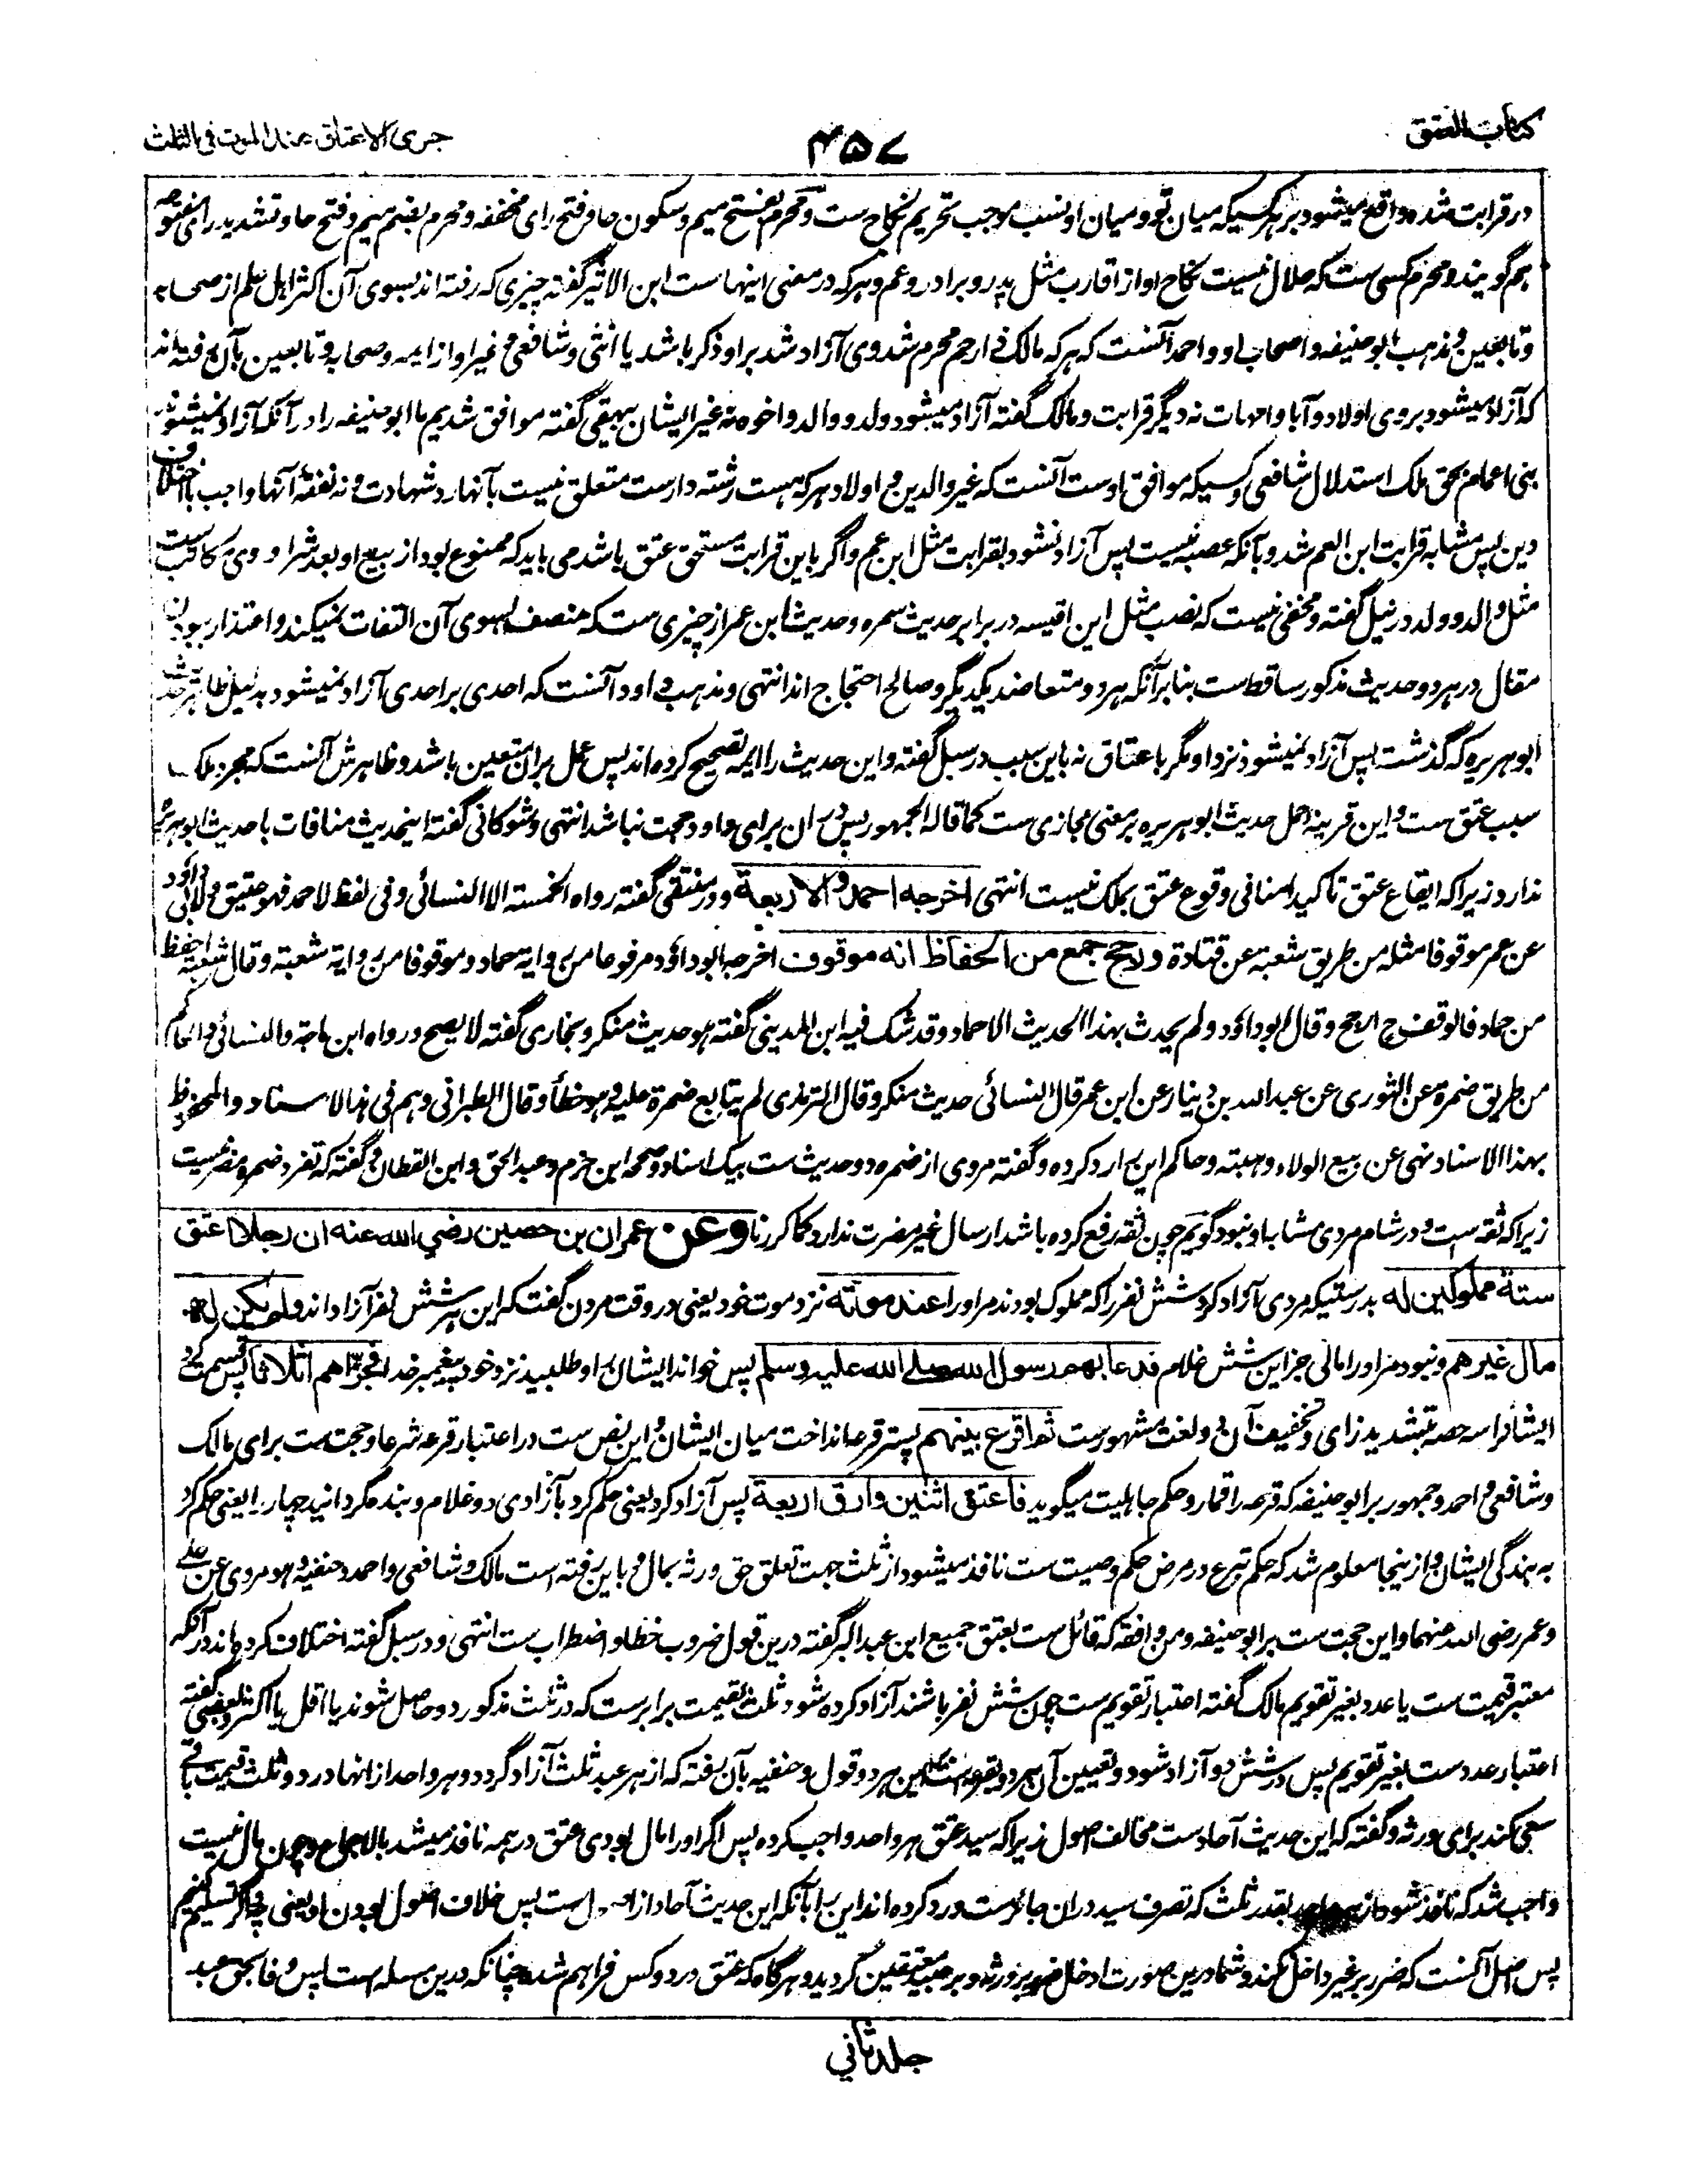 کتاب العتق
۴۵۷
جری الاعتاق عند الموت فی الثلث
در قرابت شده واقع میشود بر هر کسیکه میان تو و میان او نسب موجب تحریم نکاح ست و محرم بفتح میم و سکون حا و فتح رای مخففه و محرم بضم میم و فتح حا و تشدید رای مفتوحه
هم گویند و محرم کسی ست که حلال نیست نکاح او از اقارب مثل پدر و برادر و عم و هر که در معنی اینها ست ابن الاثیر گفته چیزی که رفته اند بسوی آن اکثر اهل علم از صحابه
و تابعین و مذهب ابو حنیفه و اصحاب او و احمد آنست که هر که مالک ذا رحم محرم شد وی آزاد شد بر او ذکر باشد یا انثی و شافعی و غیر او از ایمه و صحابه و تابعین بآن رفته اند
که آزاد میشود بروی اولاد و آبا و امهات نه دیگر قرابت و مالک گفته آزاد میشود ولد و والد و اخوه نه غیر ایشان بیهقی گفته موافق شدیم ما ابو حنیفه را در آنکه آزاد نمیشوند
بنی اعمام بحق ملک استدلال شافعی و کسیکه موافق اوست آنست که غیر والدین و اولاد هر که هست رشته دارست متعلق نیست بآنها رد شهادت و نه نفقه آنها واجب با اختلاف
دین پس مشابه قرابت ابن العم شد و بآنکه عصبه نیست پس آزاد نشود بقرابت مثل ابن عم و اگر باین قرابت مستحق عتق باشد می باید که ممنوع بود از بیع او بعد شرا و وی مکاتب ست
مثل والد و ولد در نیل گفته و مخفی نیست که نصب مثل این اقیسه در برابر حدیث سمره و حدیث ابن عمر از چیزی ست که منصف بسوی آن التفات نمیکند و اعتذار بودن
مقال در هر دو حدیث مذکور ساقط ست بنا بر آنکه هر دو متعاضد یکدیگر و صالح احتجاج اند انتهی و مذهب داود آنست که احدی بر احدی آزاد نمیشود بدلیل ظاهر حدیث
ابو هریره که گذشت پس آزاد نمیشود نزد او مگر باعتاق نه باین سبب در سبل گفته و این حدیث را ایمه تصحیح کرده اند پس عمل بر آن متعین باشد و ظاهرش آنست که مجرد ملک
سبب عتق ست و این قرینه حمل حدیث ابو هریره بر معنی مجازی ست کما قاله الجمهور پس در آن برای داود حجت نباشد انتهی و شوکانی گفته اینحدیث منافات با حدیث ابو هریره
ندارد زیرا که ایقاع عتق تاکیدا منافی وقوع عتق بملک نیست انتهی اخرجه احمد و الاربعة و در منتقی گفته رواه الخمسة الا النسائی و فی لفظ لاحمد فهو عتیق و لابی داود
عن عمر موقوفا مثله من طریق شعبة عن قتادة و رجح جمع من الحفاظ انه موقوف اخرجه ابو داؤد مرفوعا من روایة حماد و موقوفا من روایة شعبة و قال شعبة احفظ
من حماد فالوقف ح ارجح و قال ابو داؤد و لم یحدث بهذا الحدیث الا حماد و قد شک فیه ابن المدینی گفته هو حدیث منکر و بخاری گفته لا یصح و رواه ابن ماجة و النسائی و الحاکم
من طریق ضمرة عن الثوری عن عبد الله بن دینار عن ابن عمر قال النسائی حدیث منکر و قال الترمذی لم یتابع ضمرة علیه و هو خطأ و قال الطبرانی وهم فی هذا الاسناد و المحفوظ
بهذا الاسناد نهی عن بیع الولاء و هبته و حاکم این رد کرده و گفته مروی از ضمره دو حدیث ست بیک اسناد و صححه ابن حزم و عبد الحق و ابن القطان و گفته که تفرد ضمره مضر نیست
زیرا که ثقه است و در شام مردی مشابه او نبود گویم چون ثقه رفع کرده باشد ارسال غیر مضرت ندارد کما کررنا وعن عمران بن حصین رضي الله عنه ان رجلا اعتق
ستة مملوکین له بدرستیکه مردی آزاد کرد شش نفر را که مملوک بودند مر او را عند موته نزد موت خود یعنی در وقت مردن گفت که این هر شش نفر آزاد اند ولم یکن له
مال غیرهم و نبود مر او را مالی جز این شش غلام فدعا بهم رسول الله صلے الله علیه وسلم پس خواند ایشان را و طلبید نزد خود پیغمبر خدا فجزأهم اثلاثا پس قسمت کرد
ایشانرا سه حصه بتشدید زای و تخفیف آن دو لغت مشهورست ثم اقرع بینهم پستر قرعه انداخت میان ایشان و این نص ست در اعتبار قرعه شرعا و حجت ست برای مالک
و شافعی و احمد و جمهور بر ابو حنیفه که قرعه را قمار و حکم جاهلیت میگوید فاعتق اثنین وارق اربعة پس آزاد کرد یعنی حکم کرد بآزادی دو غلام و بنده گردانید چهار را یعنی حکم کرد
به بندگی ایشان و ازینجا معلوم شد که حکم تبرع در مرض حکم وصیت ست نافذ میشود از ثلث جهت تعلق حق ورثه بمال و باین رفته است مالک و شافعی و احمد و حنفیه و هو مروی عن علے
و عمر رضی الله عنهما و این حجت ست بر ابو حنیفه و من وافقه که قائل ست بعتق جمیع ابن عبد البر گفته درین قول ضروب خطا و اضطراب ست انتهی و در سبل گفته اختلاف کرده اند در آنکه
معتبر قیمت ست یا عدد بغیر تقویم مالک گفته اعتبار تقویم ست چون شش نفر باشند آزاد کرده شود ثلث بقیمت برابرست که در ثلث مذکور دو حاصل شوند یا اقل یا اکثر و بعضی گفته
اعتبار عددست بغیر تقویم پس در شش دو آزاد شود و تعیین آن هر دو بقرعه است این هر دو قول و حنفیه بآن رفته که از هر عبد ثلث آزاد گردد و هر واحد از انها در دو ثلث قیمت باقے
سعی کند برای ورثه و گفته که این حدیث آحادست مخالف اصول زیرا که سید عتق هر واحد واجب کرده پس اگر او را مال بودی عتق در همه نافذ میشد بالاجماع و چون مال نیست
واجب شد که نافذ شود از هر واحد بقدر ثلث که تصرف سید در ان جائزست و رد کرده اند این را بآنکه این حدیث آحاد از اصول است پس خلاف اصول بودن او یعنی چه و اگر تسلیم کنیم
پس اصل آنست که ضرر بر غیر داخل نکند و شما درین صورت ادخال ضرر بر ورثه و بر عبید معتقین گردید و هرگاه که عتق در دو کس فراهم شده چنانکه درین مسله است پس وفا بحق عبد
جلد ثانی